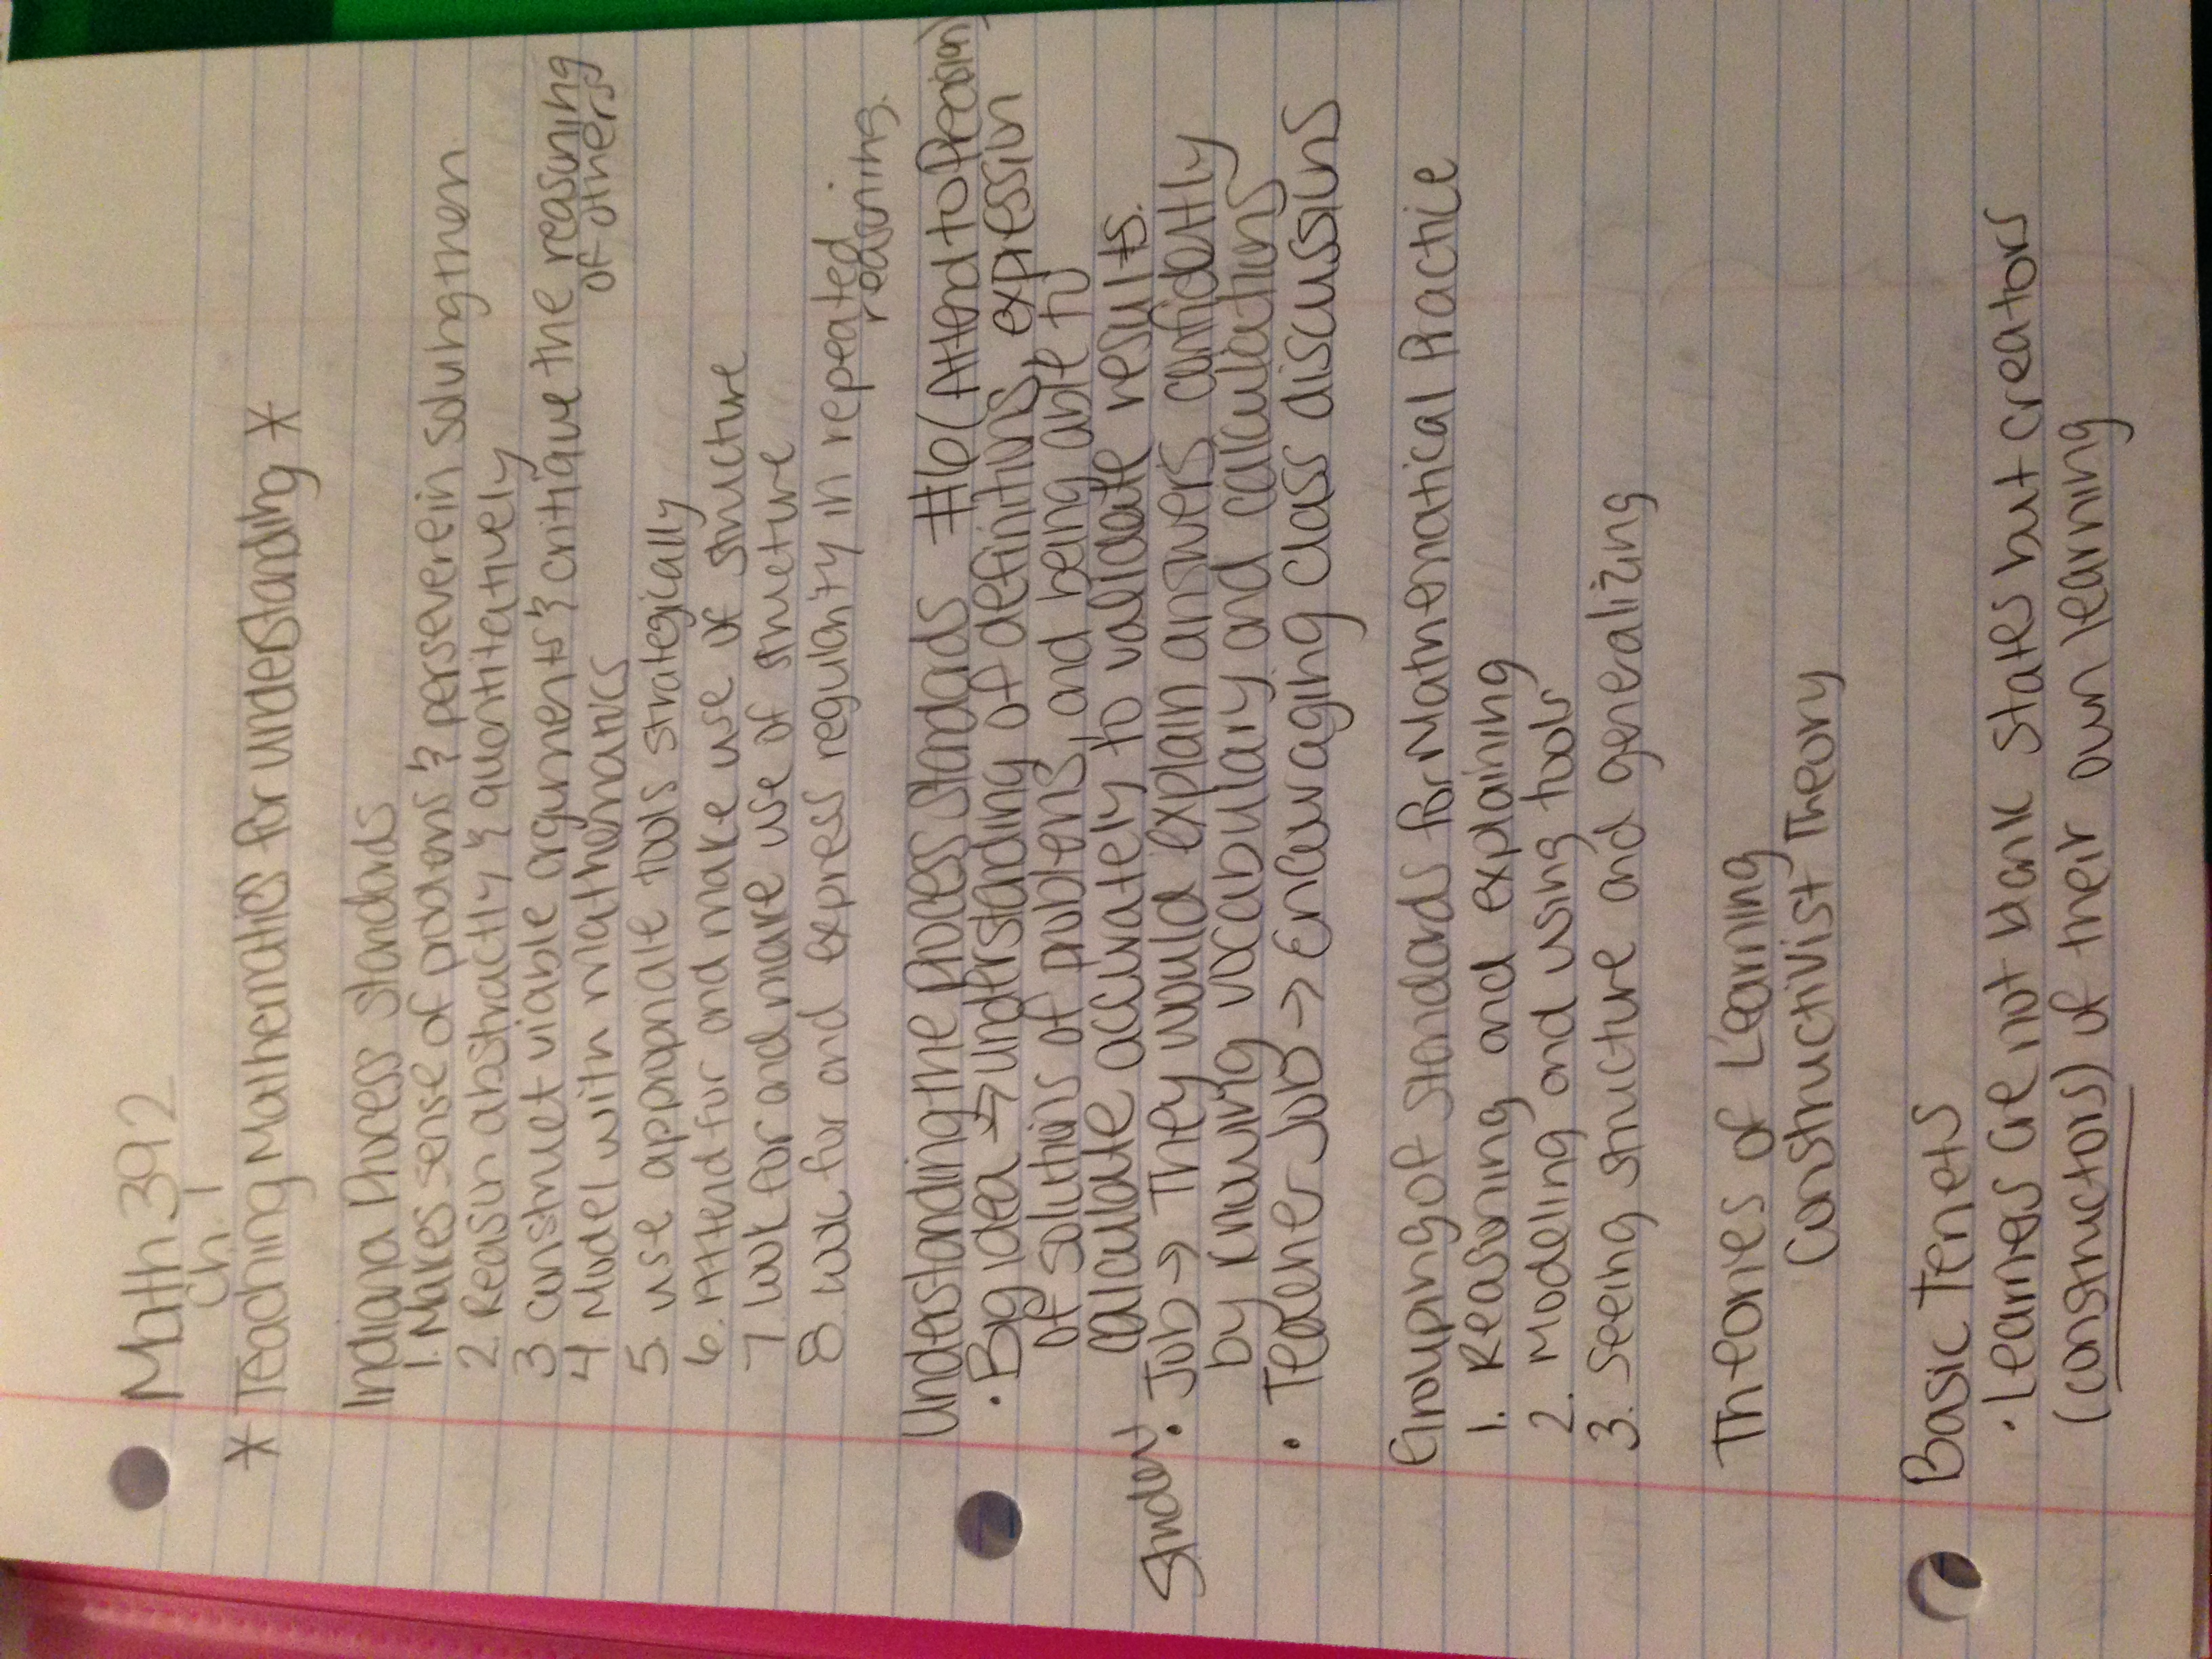 Math 392
Ch. 1
* Teaching Mathematics for understanding *
Indiana Process Standards
1. Makes sense of problems & persevere in solving them.
2. Reason abstractly & quantitatively
3. construct viable arguments & critique the reasoning
of others
4. Model with mathematics
5. use appropriate tools strategically
6. Attend for and make use of structure
7. look for and make use of structure
8. look for and express regularity in repeated
reasoning.
Understanding the Process Standards #6 (Attend to Precision)
• Big idea → understanding of definitions, expression
of solutions of problems, and being able to
calculate accurately to validate results.
Student • Job → They would explain answers confidently
by knowing vocabulary and calculations
• Teacher Job → Encouraging class discussions
Grouping of standards for Mathematical Practice
1. Reasoning and explaining
2. Modeling and using tools
3. Seeing structure and generalizing
Theories of Learning
Constructivist Theory
Basic Tenets
• Learners are not blank slates but creators
(constructors) of their own learning